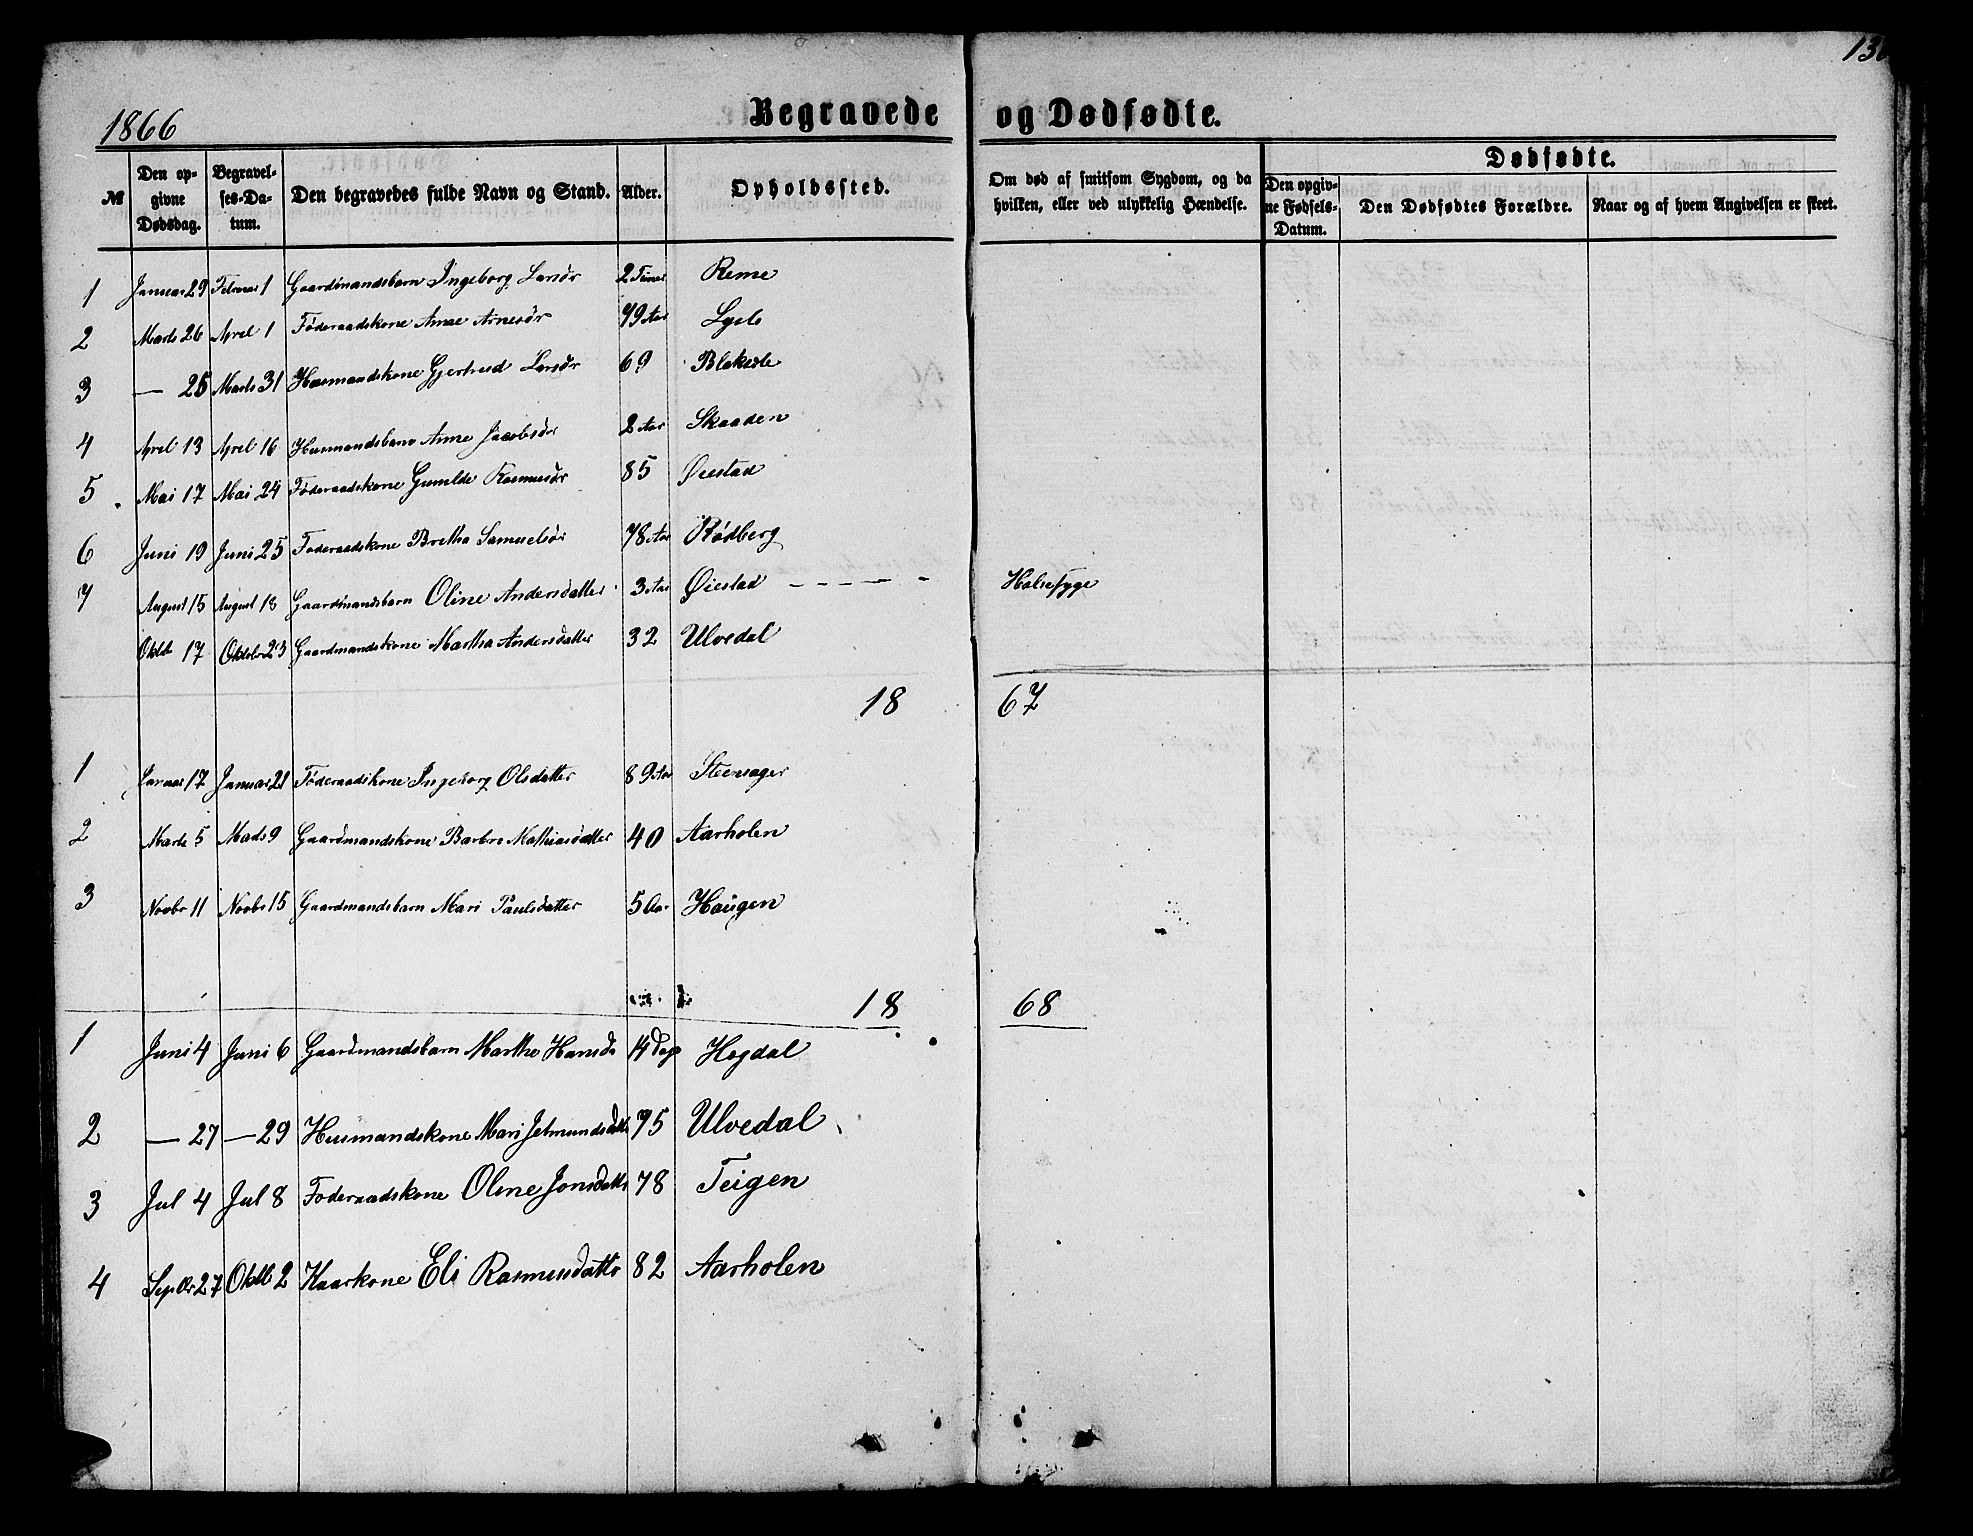 1866 Begravede og Dødfødte.
№ Den opgivne Dødsdag. Begravelses-Datum. Den begravedes fulde Navn og Stand. Alder. Opholdssted. Om død af smitsom Sygdom, og da hvilken, eller ved ulykkelig Hændelse. Dødfødte. Den opgivne Fødsels-Datum. Den Dødfødtes Forældre. Naar og af hvem Angivelsen er skeet.
1 Januar 29 Februar 1 Gaardmandsbarn Ingeborg Larsdr 2 Timer Reme
2 Marts 26 April 1 Føderaadskone Anne Arnesdr 79 Aar
3 — 25 Marts 31 Huusmandskone Gjertrud Larsdr 69
4 April 13 April 16 Husmandsbarn Anne Jacobsdr 2 Aar Skaaden
5 Mai 17 Mai 24 Føderaadskone Gunilde Rasmusdr 85 Øiestad
6 Juni 19 Juni 25 Føderaadskone Bretha Samuelsdr 78 Aar Rødberg
7 August 15 August 18 Gaardmandsbarn Oline Andersdatter 3 Aar Øiestad - - - - - Halssyge
Oktb 17 Oktobr 23 Gaardmandskone Martha Andersdatter 32 Ulvedal
18 67
1 Januar 17 Januar 21 Føderaadskone Ingeborg Olsdatter 89 Aar Steensager
2 Marts 5 Marts 9 Gaardmandskone Barbro Mathiasdatter 40 Aarholen
3 Novbr 11 Novbr 15 Gaardmandsbarn Mari Paulsdatter 5 Aar Haugen
18 68
1 Juni 4 Juni 6 Gaardmandsbarn Marthe Hansd 14 Dage Hogdal
2 — 27 — 29 Husmandskone Mari Jetmundsdatt 75 Ulvedal
3 Jul 4 Jul 8 Foderaadskone Oline Jonsdattr 78 Teigen
4 Sepbr 27 Oktb 2 Kaarkone Eli Rasmusdattr 82 Aarholen